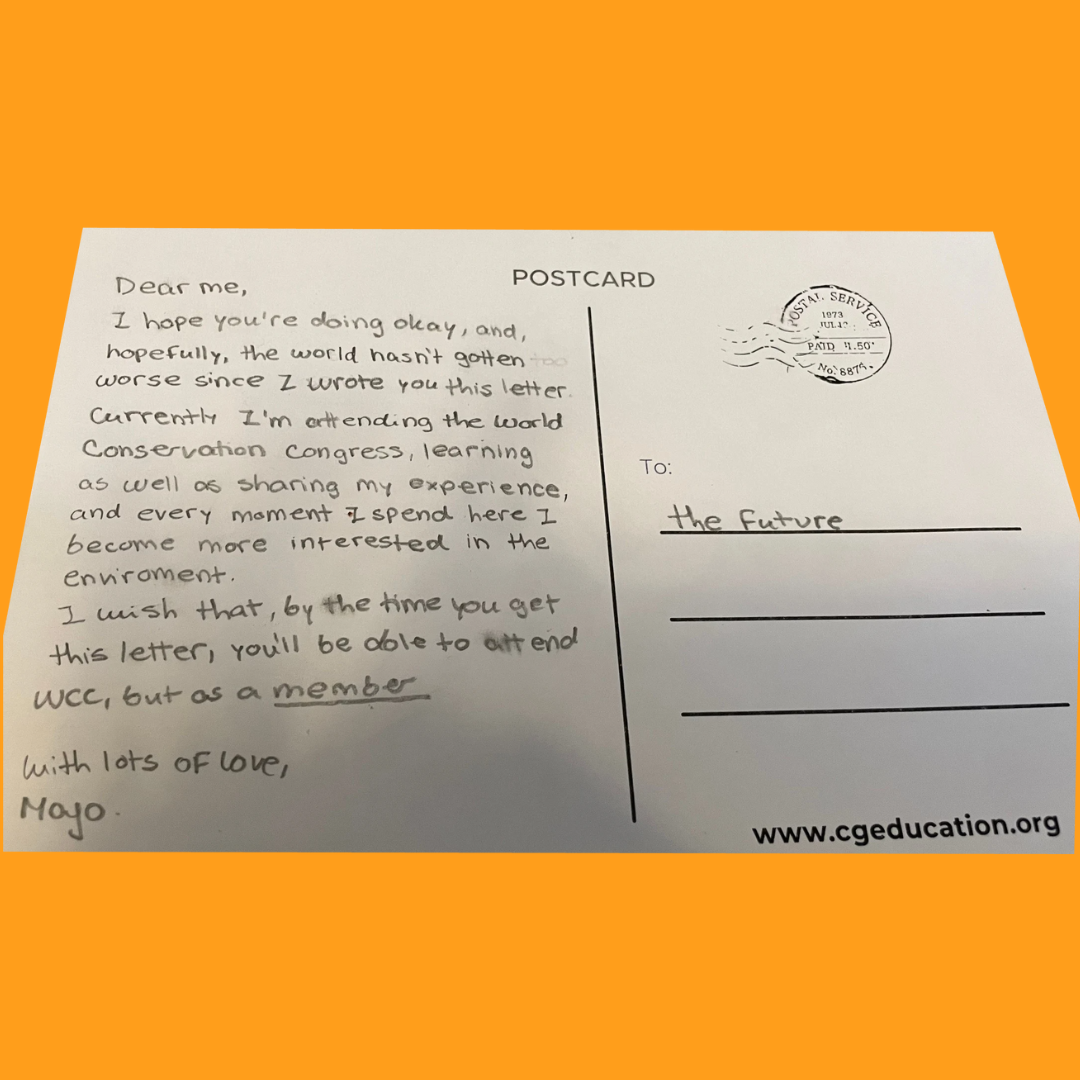 POSTCARD
Dear me,
I hope you're doing okay, and,
hopefully, the world hasn't gotten too
worse since I wrote you this letter.
Currently I'm attending the world
Conservation Congress, learning
as well as sharing my experience,
and every moment I spend here I
become more interested in the
enviroment.
I wish that, by the time you get
this letter, you'll be able to attend
WCC, but as a member
With lots of love,
Majo.
POSTAL SERVICE
1973
JUL 12
PAID $1.50
No. 8875.
To:
the future
www.cgeducation.org